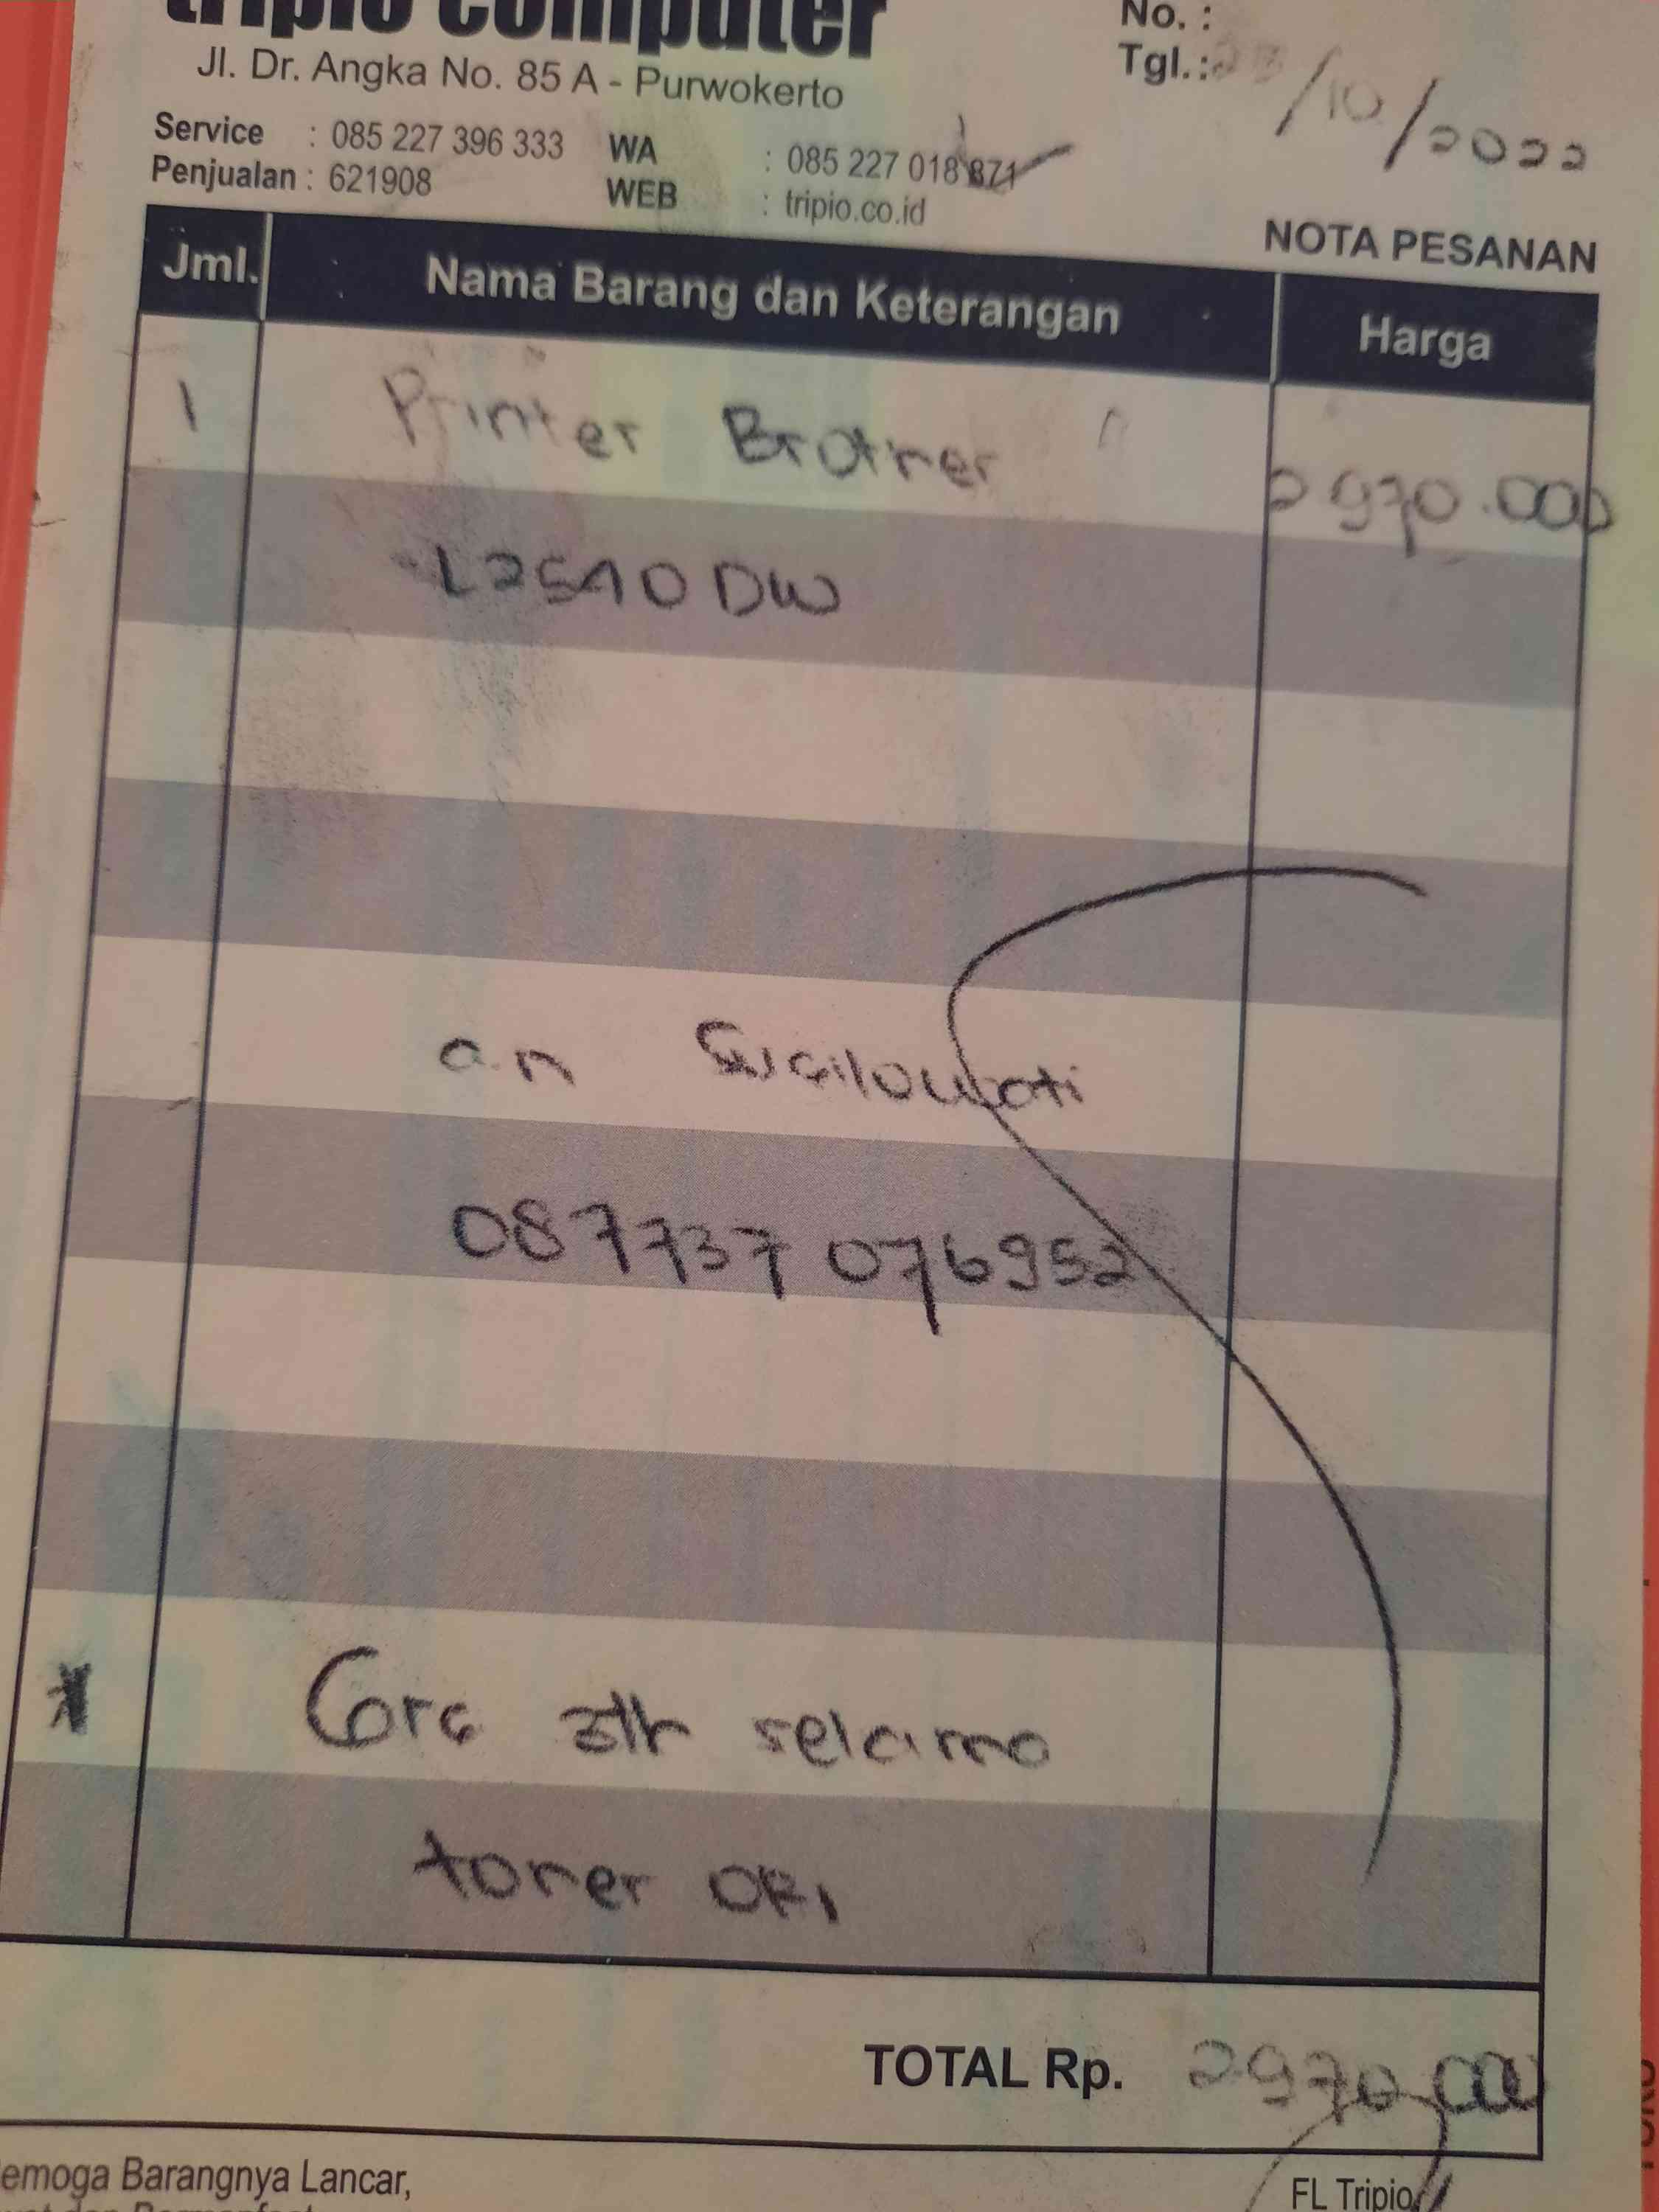 tripio computer
No. :
Jl. Dr. Angka No. 85 A - Purwokerto
Tgl.: 23/10/2022
Service : 085 227 396 333 WA : 085 227 018 871
Penjualan : 621908 WEB : tripio.co.id
NOTA PESANAN
Jml. Nama Barang dan Keterangan Harga
1 Printer Brother 2970.000
L2540DW
a.n Susilowati
087737 076952
* Gra 3th selama
toner ORI
TOTAL Rp. 2970.000
emoga Barangnya Lancar,
FL Tripio